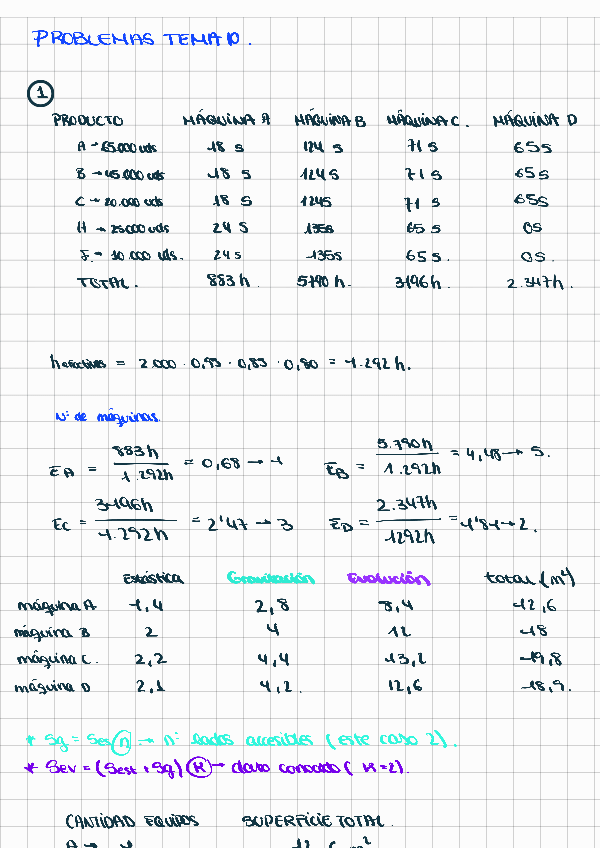 PROBLEMAS TEMA 10.
1
PRODUCTO MÁQUINA A MÁQUINA B MÁQUINA C. MÁQUINA D
A → 65.000 uds 18 s 124 s 71 s 65 s
B → 45.000 uds 18 s 124 s 71 s 65 s
C → 20.000 uds 18 s 124 s 71 s 65 s
H → 25000 uds 24 s 135 s 65 s 0s
J → 10.000 uds. 24 s 135 s 65 s. 0s.
TOTAL. 883 h. 5790 h. 3196 h. 2.347 h.
h efectivas = 2.000 · 0,95 · 0,85 · 0,80 = 1.292 h.
Nº de máquinas.
EA = 883 h / 1.292h = 0,68 → 1 EB = 5.790h / 1.292h = 4,48 → 5.
EC = 3196h / 1.292h = 2'47 → 3 ED = 2.347h / 1292h = 1'81 → 2.
Estástica Gravitación Evolución total (m²)
máquina A 1,4 2,8 8,4 12,6
máquina B 2 4 12 18
máquina C. 2,2 4,4 13,2 19,8
máquina D 2,1 4,2 12,6 18,9.
* Sg = Ses n → nº lados accesibles (este caso 2).
* Sev = (Sest + Sg) K → dato conocido (K=2).
CANTIDAD EQUIPOS SUPERFICIE TOTAL.